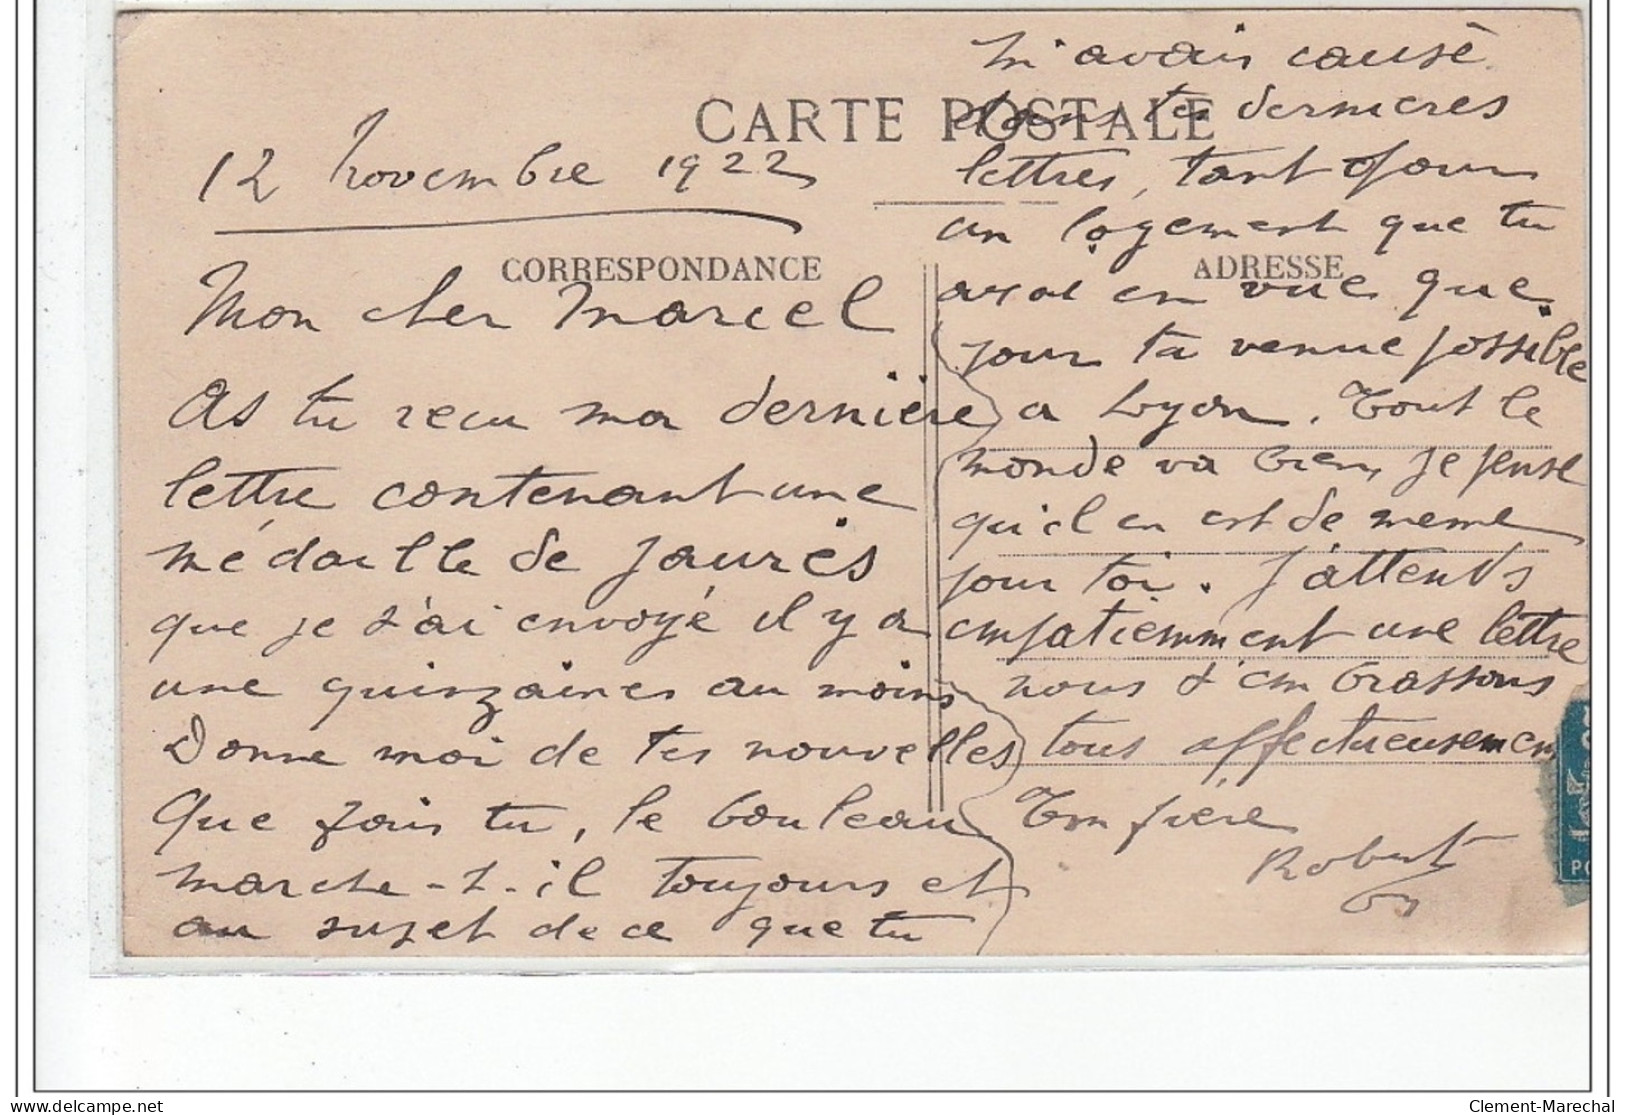 CARTE POSTALE
CORRESPONDANCE
ADRESSE
12 Novembre 1922
Mon cher Marcel
As tu recu ma dernière
lettre contenant une
médaille de Jaurès
que je t'ai envoyé il y a
une quinzaines au moins
Donne moi de tes nouvelles
Que fais tu, le bouleau
marche-t-il toujours et
au sujet de ce que tu
m'avais causé
dans tes dernieres
lettres, tant pour
un logement que tu
avais en vue que
pour ta venue possible
a Lyon. Tout le
monde va bien, je pense
qu'il en est de meme
pour toi. J'attends
empatiemment une lettre
nous t'embrassons
tous affectueusement
Ton frère
Robert
PO
Clement-Marechal